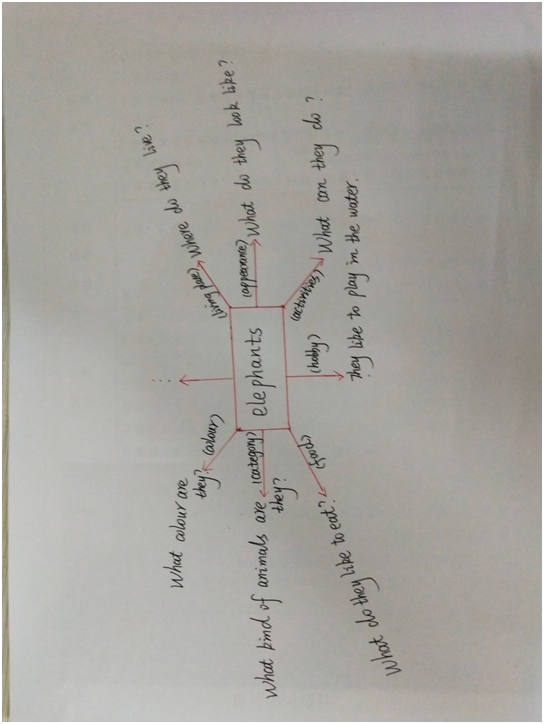 elephants
(colour)
What colour are
they?
(living place)
Where do they live?
(category)
What kind of animals are
they?
(appearance)
What do they look like?
(food)
What do they like to eat?
(hobby)
They like to play in the water.
(activities)
What can they do?
...